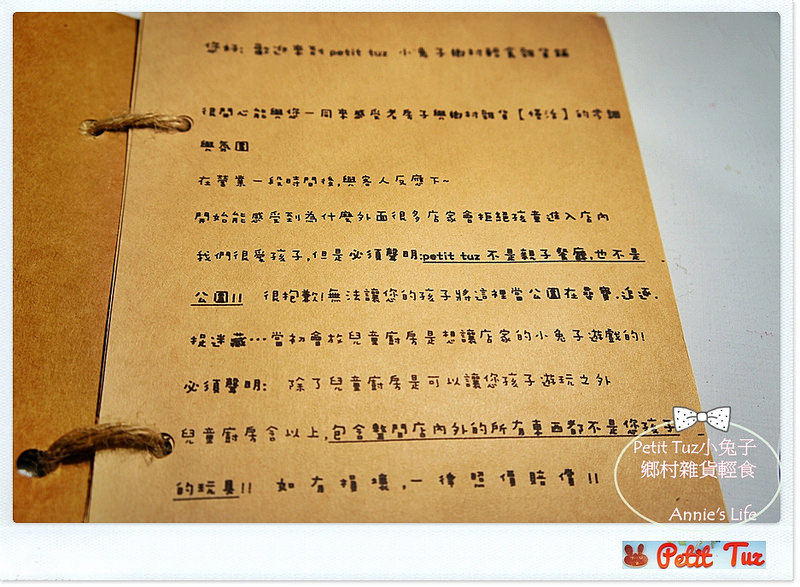 您好: 歡迎來到 petit tuz 小兔子鄉村輕食雜貨舖
很開心能與您一同來感受老房子與鄉村雜貨【慢活】的步調
與氛圍
在營業一段時間後,與客人反應下~
開始能感受到為什麼外面很多店家會拒絕孩童進入店內
我們很愛孩子,但是必須聲明:petit tuz 不是親子餐廳,也不是
公園!! 很抱歉!無法讓您的孩子將這裡當公園在尋寶.追逐.
捉迷藏…當初會放兒童廚房是想讓店家的小兔子遊戲的!
必須聲明: 除了兒童廚房是可以讓您孩子遊玩之外
兒童廚房含以上,包含整間店內外的所有東西都不是您孩子
的玩具!! 如有損壞,一律照價賠償!!
Petit Tuz小兔子
鄉村雜貨輕食
Annie's Life
Petit Tuz